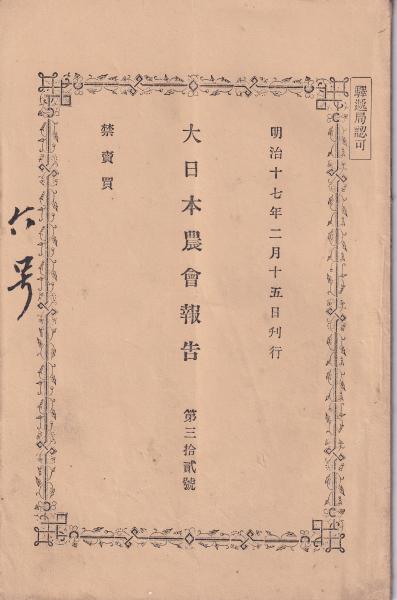 驛遞局認可
明治十七年二月十五日刋行
大日本農會報告 第三拾貳號
禁賣買
六号